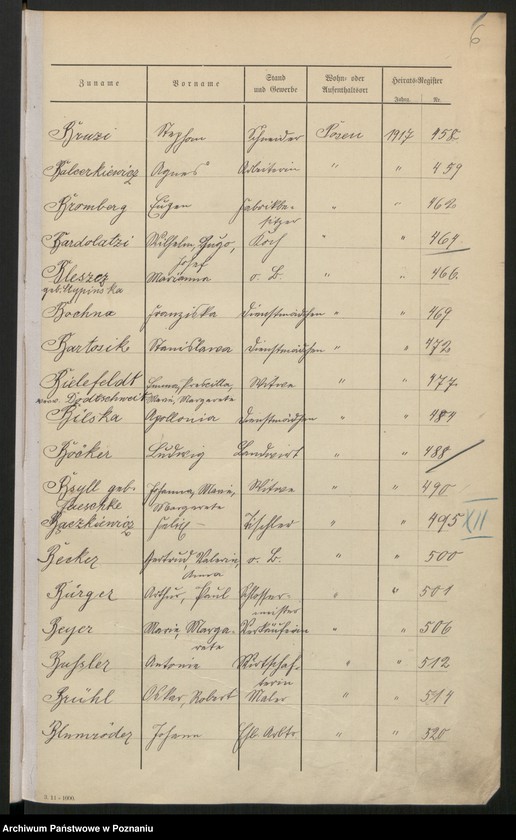 6
Zuname Vorname Stand und Gewerbe Wohn- oder Aufenthaltsort Heirats-Register
Jahrg. Nr.
Bruzi Stephan Schneider Posen 1917 458
Balcerkiewicz Agnes Arbeiterin " " 459
Bromberg Eugen Fabrikbe- " " 462
sitzer
Bardolatzi Wilhelm, Hugo, Koch " " 464
Josef
Bleszcz Marianna o. B. " " 466
geb.
Bochna Franziska Dienstmädchen " " 469
Bartosik Stanislawa Dienstmädchen " " 472
Bielefeldt Emma, Priscilla, Witwe " " 477
verw. Dodtschweit Marie, Margarete
Bilska Apollonia Dienstmädchen " " 484
Böcker Ludwig Landwirt " " 488
Bsyll geb. Johanna, Marie, Witwe " " 490
Jaeschke Margarete
Baczkiewicz Felix Tischler " " 495 XII
Becker Gertrud, Valerie, o. B. " " 500
Anna
Bürger Arthur, Paul Schlosser- " " 501
meister
Beyer Marie, Marga- Verkäuferin " " 506
rete
Bussler Antonie Wirtschaf- " " 512
terin
Brühl Oskar, Robert Maler " " 514
Blumröder Johann Hlb. Arbtr " " 520
S 11 - 1000
Archiwum Państwowe w Poznaniu